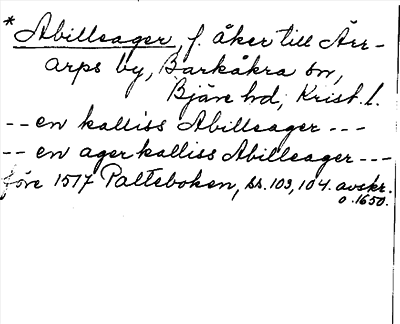 * Abillsager, f. åker till Ärr-
arps by, Barkåkra sn,
Bjäre hd, Krist. l.
-- en kalliss Abillsager ---
-- en ager kalliss Abillsager ---
före 1517 Palteboken, ss. 103, 104. avskr.
o. 1650.